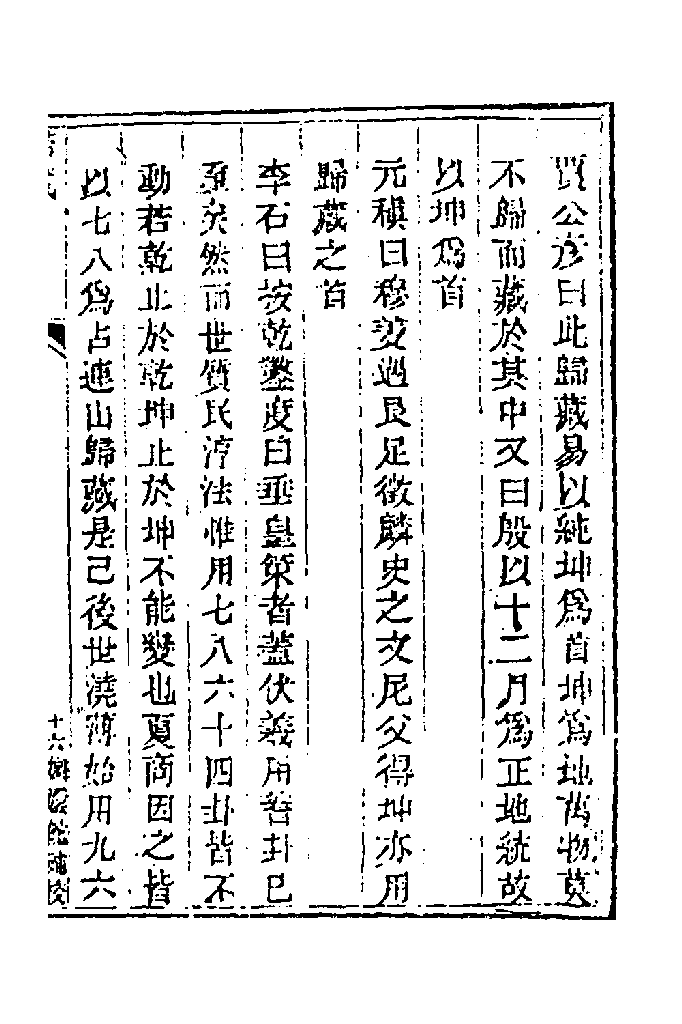 賈公彥曰此歸藏易以純坤爲首坤爲地萬物莫
不歸而藏於其中又曰殷以十二月爲正地統故
以坤爲首
元稹曰穆姜遇艮足徵麟史之文尼父得坤亦用
歸藏之首
李石曰按乾鑿度曰垂皇策者蓋伏義用蓍卦已
重矣然而世質民淳法惟用七八六十四卦皆不
動若乾止於乾坤止於坤不能變也夏商因之皆
以七八爲占連山歸藏是已後世澆薄始用九六
十六嫏嬛館補校